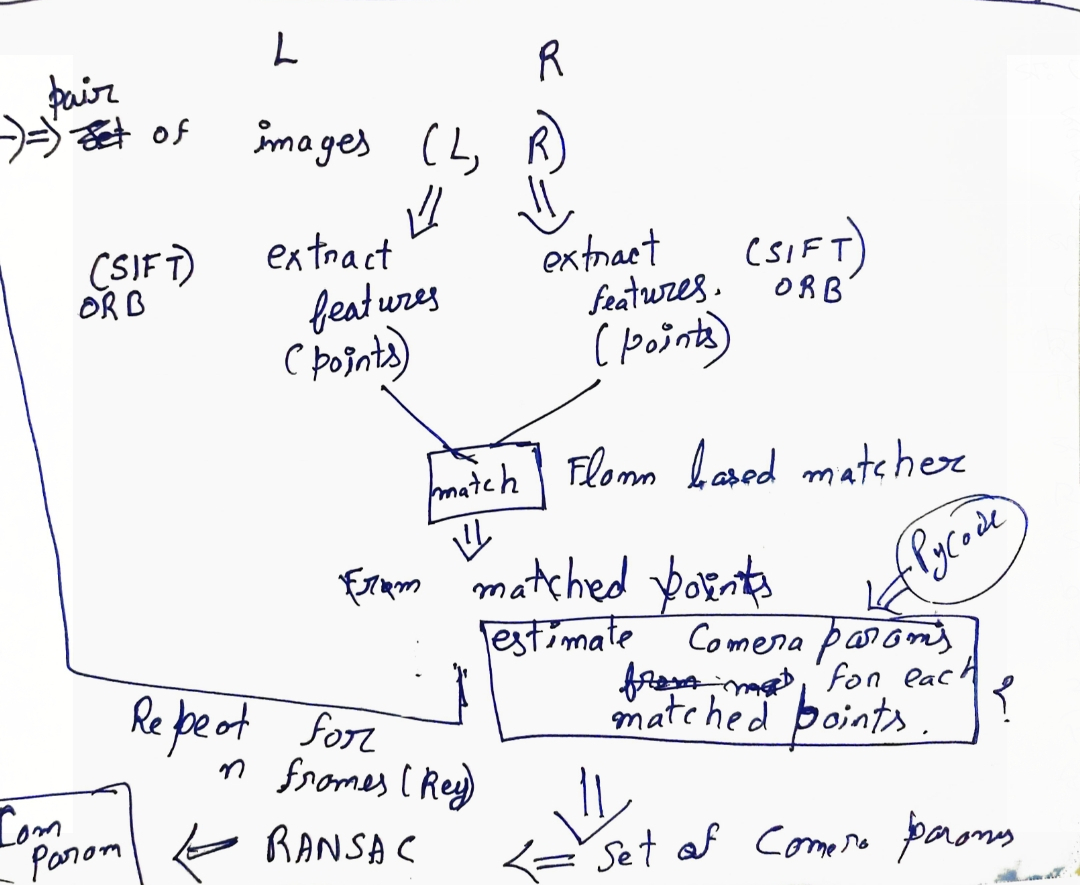 L R
pair
of images (L, R)
(SIFT) extract extract (SIFT)
ORB features features. ORB
(points) (points)
match Flann based matcher
Pycode
From matched points
estimate Camera params
for each
matched points. ?
Repeat for
n frames (Key)
Set of Camera params
RANSAC
Cam
Param